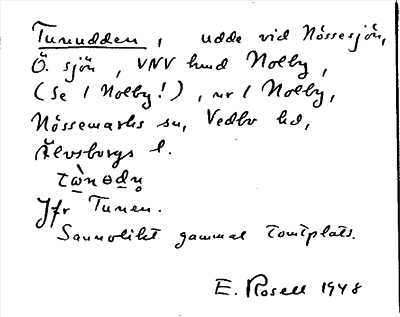 Tunudden, udde vid Nössesjön,
Ö. sjön, VNV hmd Nolby,
(Se 1 Nolby!), nr 1 Nolby,
Nössemarks sn, Vedbo hd,
Älvsborgs l.
Jfr Tunen.
Sannolikt gammal tomtplats.
E. Rosell 1948